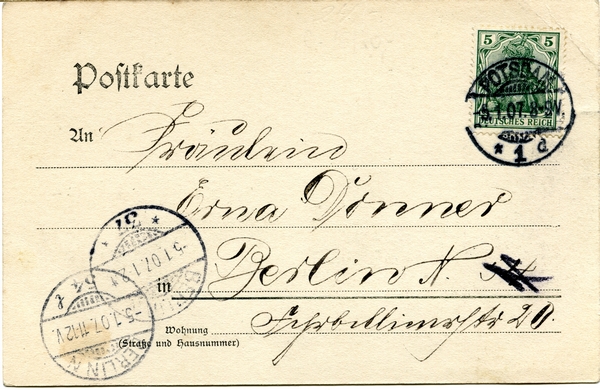 5 5
DEUTSCHES REICH
POTSDAM
5.1.07.8-9V.
* 1 d
Postkarte
An Fräulein
Erna Donner
in Berlin N.
Wohnung
(Straße und Hausnummer)
Fehrbellinerstr 20.
* 37 *
-5.1.07.12
54
-5.1.07.11-12V.
BERLIN N